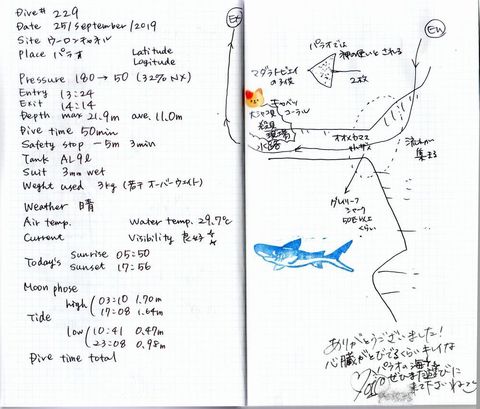 Dive# 229
Date 25/september/2019
Site ウーロンチャネル
Place パラオ Latitude
Logitude
Pressure 180→50 (32% NX)
Entry 13:24
Exit 14:14
Depth max 21.9m ave. 11.0m
Dive time 50min
Safety stop −5m 3min
Tank AL 9ℓ
Suit 3mm wet
Weght used 3kg (若干オーバーウェイト)
Weather 晴
Air temp. Water temp. 29.7℃
Current Visibility 良好
Today's sunrise 05:50
sunset 17:56
Moon phose
Tide high 03:10 1.70m
17:08 1.64m
low 10:41 0.47m
23:08 0.98m
Dive time total
Ex
En
パラオでは
神の使いとされる
マダラトビエイ
の子供
2枚
キャベツ
コーラル
大シャコ貝
産卵
現場
水路
オオメカマス
流れが
集まる
グレイリーフ
シャーク
50匹以上
くらい
ありがとうございました!
心臓がとびでるくらいキレイな
パラオの海を
ぜひまた遊びに
来て下さいねー